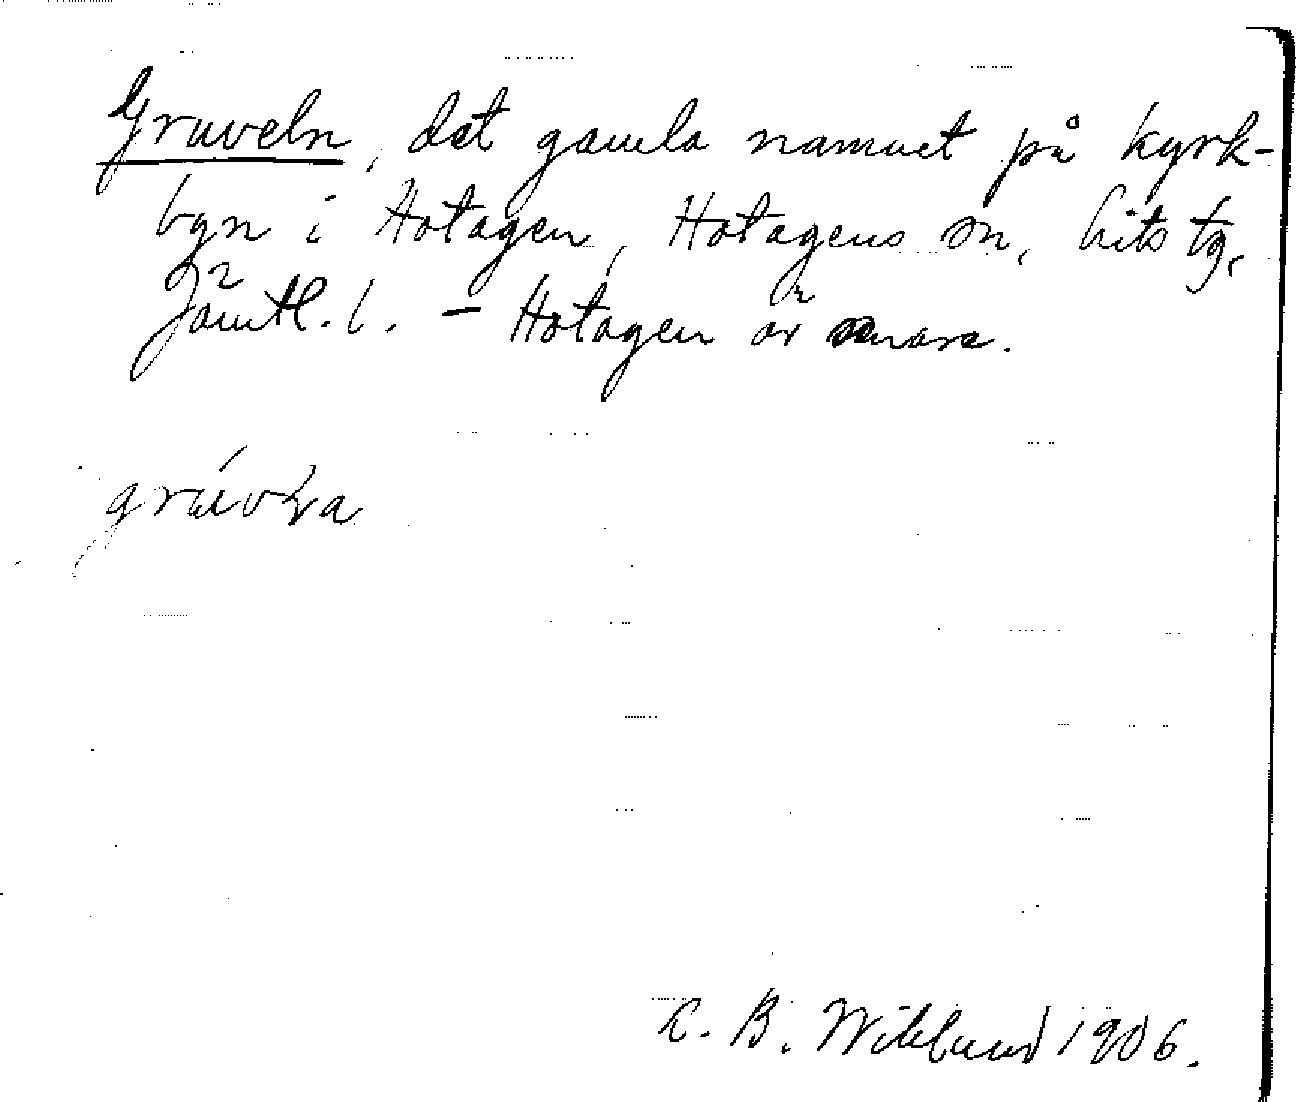 Gruveln, det gamla namnet på kyrk-
byn i Hotagen, Hotagens sn, Lits tg,
Jämtl. l. – Hotagen är senare.
K. B. Wiklund 1906.